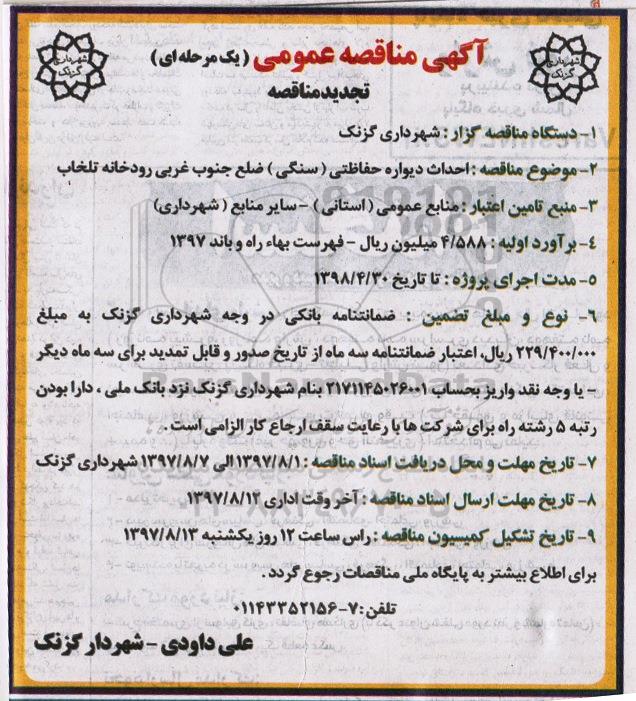 شهرداری گزنک
آگهی مناقصه عمومی ( یک مرحله ای )
شهرداری گزنک
تجدیدمناقصه
۱- دستگاه مناقصه گزار : شهرداری گزنک
۲- موضوع مناقصه : احداث دیواره حفاظتی ( سنگی ) ضلع جنوب غربی رودخانه تلخاب
۳- منبع تامین اعتبار : منابع عمومی ( استانی ) - سایر منابع ( شهرداری)
۴- برآورد اولیه : ۴/۵۸۸ میلیون ریال - فهرست بهاء راه و باند ۱۳۹۷
۵- مدت اجرای پروژه : تا تاریخ ۱۳۹۸/۴/۳۰
۶- نوع و مبلغ تضمین : ضمانتنامه بانکی در وجه شهرداری گزنک به مبلغ
۲۲۹/۴۰۰/۰۰۰ ریال، اعتبار ضمانتنامه سه ماه از تاریخ صدور و قابل تمدید برای سه ماه دیگر
- یا وجه نقد واریز بحساب ۲۱۷۱۱۴۵۰۲۶۰۰۱ بنام شهرداری گزنک نزد بانک ملی ، دارا بودن
رتبه ۵ رشته راه برای شرکت ها با رعایت سقف ارجاع کار الزامی است .
۷- تاریخ مهلت و محل دریافت اسناد مناقصه : ۱۳۹۷/۸/۱ الی ۱۳۹۷/۸/۷ شهرداری گزنک
۸- تاریخ مهلت ارسال اسناد مناقصه : آخر وقت اداری ۱۳۹۷/۸/۱۲
۹- تاریخ تشکیل کمیسیون مناقصه : راس ساعت ۱۲ روز یکشنبه ۱۳۹۷/۸/۱۳
برای اطلاع بیشتر به پایگاه ملی مناقصات رجوع گردد .
تلفن : ۷-۰۱۱۴۳۳۵۲۱۵۶
علی داودی - شهردار گزنک